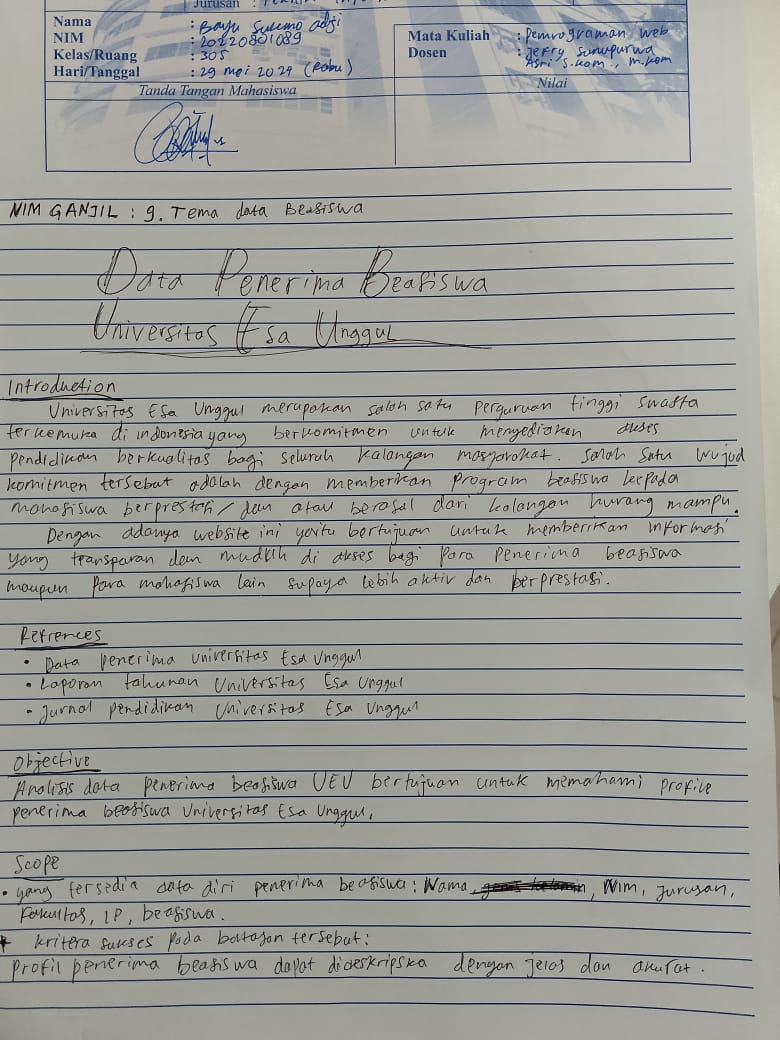 Jurusan :
Nama : Bayu Sukmo adji
NIM : 20220801089
Kelas/Ruang : 305
Hari/Tanggal : 29 mei 2024 (Rabu)
Mata Kuliah : Pemrograman web
Dosen : Jefry Sunupurwa
Asri S.kom., m.kom
Tanda Tangan Mahasiswa
Nilai
NIM GANJIL : 9. Tema data Beasiswa
Data Penerima Beasiswa
Universitas Esa Unggul
Introduction
Universitas Esa Unggul merupakan salah satu perguruan tinggi swasta
terkemuka di indonesia yang berkomitmen untuk menyediakan akses
pendidikan berkualitas bagi seluruh kalangan masyarakat. Salah satu wujud
komitmen tersebut adalah dengan memberikan program beasiswa kepada
mahasiswa berprestasi/dan atau berasal dari kalangan kurang mampu.
Dengan adanya website ini yaitu bertujuan untuk memberikan informasi
yang transparan dan mudah di akses bagi para penerima beasiswa
maupun para mahasiswa lain supaya lebih aktiv dan berprestasi.
Refrences
• Data penerima universitas Esa Unggul
• Laporan tahunan Universitas Esa Unggul
• Jurnal pendidikan Universitas Esa Unggul
Objective
Analisis data penerima beasiswa UEU bertujuan untuk memahami profile
penerima beasiswa Universitas Esa Unggul.
Scope
• yang tersedia data diri penerima beasiswa : Nama, , Nim, jurusan,
Fakultas, IP, beasiswa.
kritera sukses pada batasan tersebut :
Profil penerima beasiswa dapat dideskripska dengan jelas dan akurat.